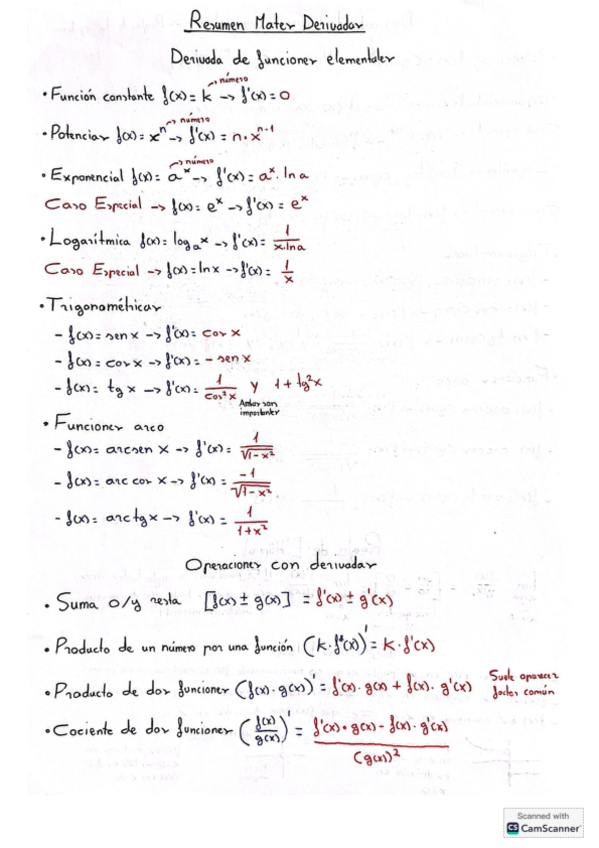 Resumen Mates Derivadas
Derivada de funciones elementales
número
• Función constante f(x) = k → f'(x) = 0
número
• Potencias f(x) = xⁿ → f'(x) = n · xⁿ⁻¹
número
• Exponencial f(x) = aˣ → f'(x) = aˣ · ln a
Caso Especial → f(x) = eˣ → f'(x) = eˣ
• Logarítmica f(x) = logₐ x → f'(x) = 1/(x · ln a)
Caso Especial → f(x) = ln x → f'(x) = 1/x
• Trigonométricas
- f(x) = sen x → f'(x) = cos x
- f(x) = cos x → f'(x) = - sen x
- f(x) = tg x → f'(x) = 1/cos² x y 1 + tg² x
Ambas son
importantes
• Funciones arco
- f(x) = arcsen x → f'(x) = 1/√(1 - x²)
- f(x) = arc cos x → f'(x) = -1/√(1 - x²)
- f(x) = arc tg x → f'(x) = 1/(1 + x²)
Operaciones con derivadas
• Suma o/y resta [f(x) ± g(x)] = f'(x) ± g'(x)
• Producto de un número por una función (k · f(x))' = k · f'(x)
• Producto de dos funciones (f(x) · g(x))' = f'(x) · g(x) + f(x) · g'(x)
Suele aparecer
factor común
• Cociente de dos funciones (f(x)/g(x))' = (f'(x) · g(x) - f(x) · g'(x))/(g(x))²
Scanned with
CS CamScanner